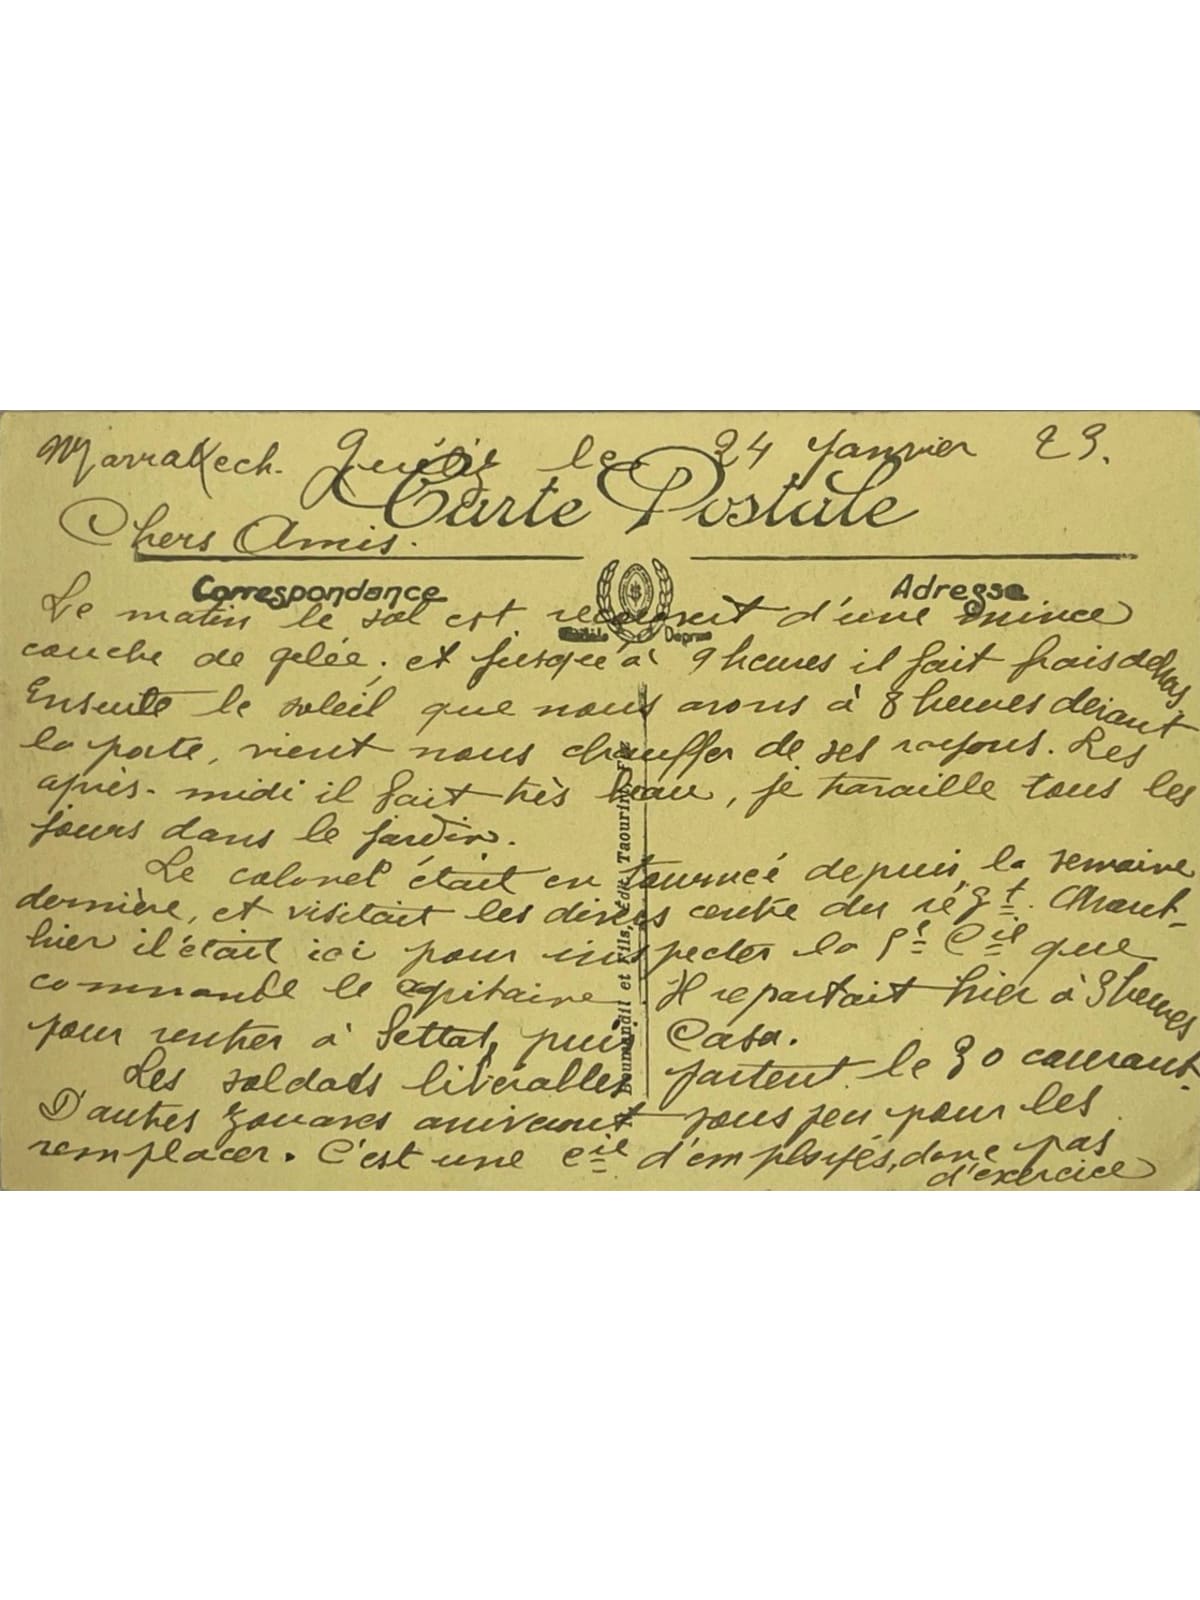 Marrakech. Guéliz le 24 Janvier 23.
Carte Postale
Chers Amis.
Correspondance Adresse
Le matin le sol est recouvert d'une mince
couche de gelée, et jusqu'à 9 heures il fait frais dehors
Ensuite le soleil que nous avons à 8 heures devant
la porte, vient nous chauffer de ses rayons. Les
après-midi il fait très beau, je travaille tous les
jours dans le jardin.
Le colonel était en tournée depuis la semaine
dernière, et visitait les divers centre du régt. Avant-
hier il était ici pour inspecter la Cie que
commande le capitaine Il repartait hier à 3 heures
pour rentrer à Settat, puis Casa.
Les soldats libérables partent le 30 courant.
D'autres zouaves arriveront sous peu pour les
remplacer. C'est une Cie d'employés, donc pas
d'exercice
Boumendil et Fils, Edit. Taourirt